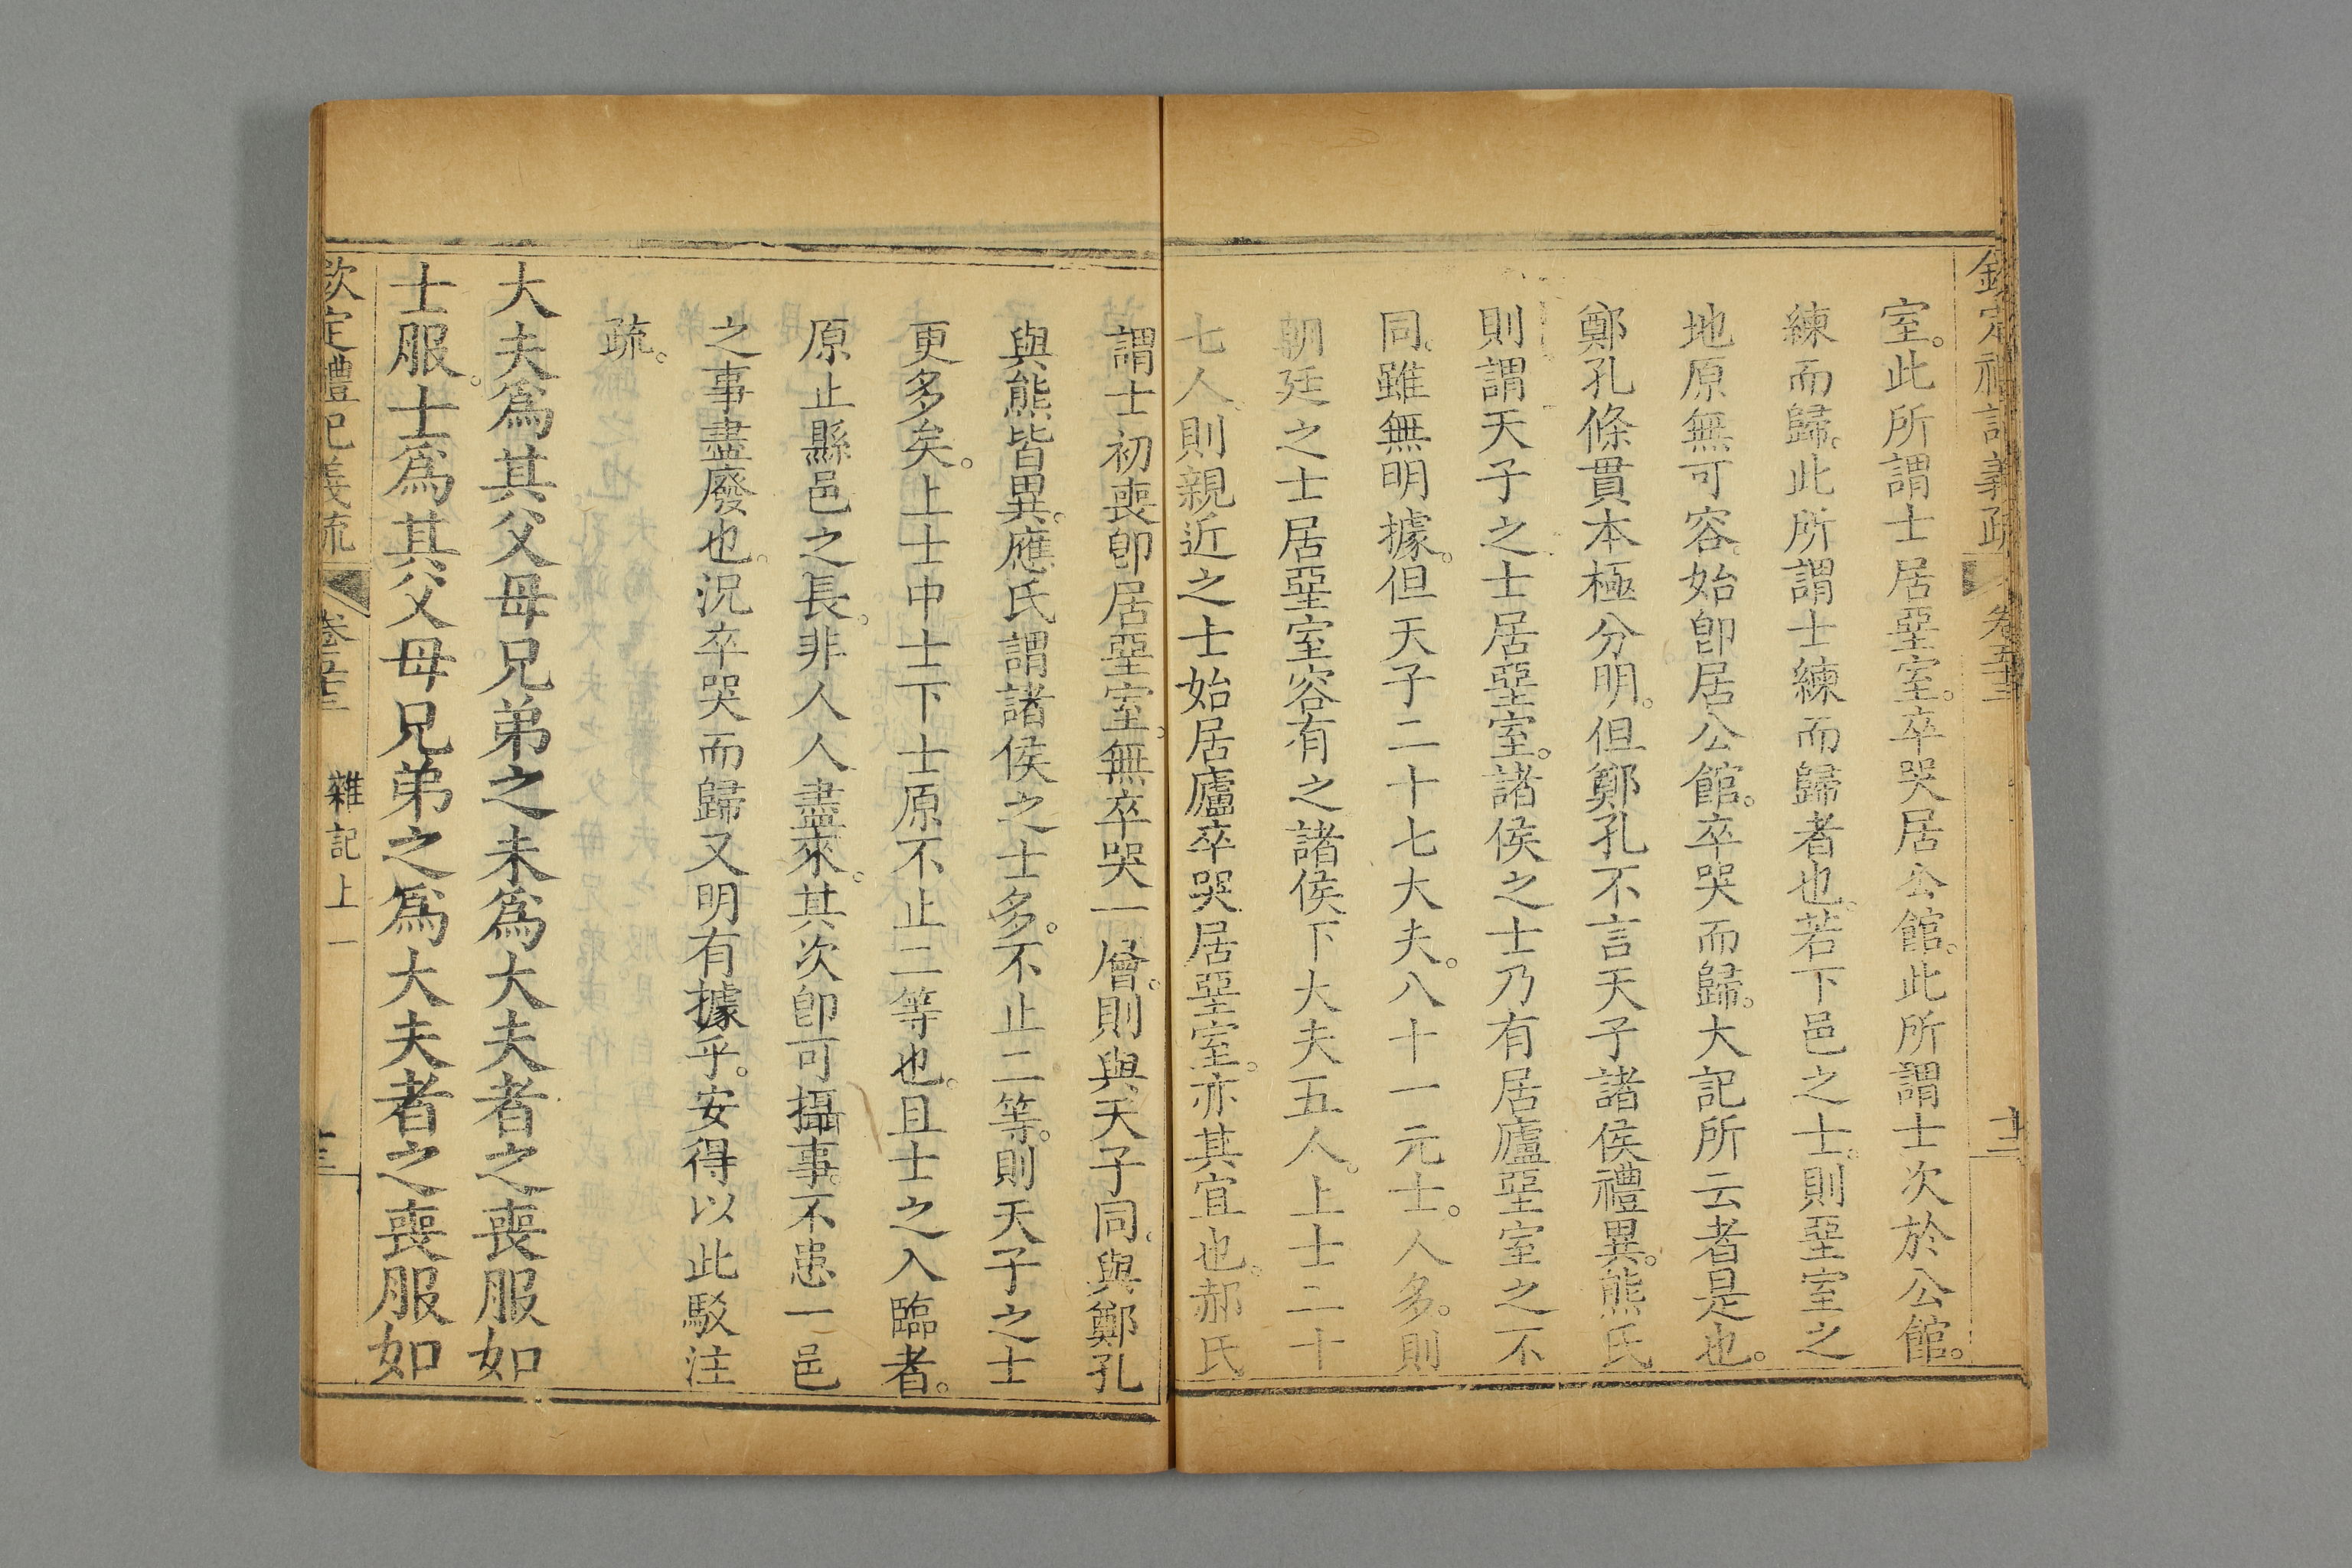 欽定禮記義疏 卷五十三 十二
室。此所謂士居堊室。卒哭居公館。此所謂士次於公館。
練而歸。此所謂士練而歸者也。若下邑之士。則堊室之
地原無可容。始卽居公館。卒哭而歸。大記所云者是也。
鄭孔條貫本極分明。但鄭孔不言天子諸侯禮異。熊氏
則謂天子之士居堊室。諸侯之士乃有居廬堊室之不
同。雖無明據。但天子二十七大夫。八十一元士。人多。則
朝廷之士居堊室容有之諸侯下大夫五人。上士二十
七人。則親近之士始居廬卒哭居堊室。亦其宜也。郝氏
謂士初喪卽居堊室。無卒哭一層。則與天子同。與鄭孔
與熊皆異。應氏謂諸侯之士多。不止二等。則天子之士
更多矣。上士中士下士原不止二等也。且士之入臨者。
原止縣邑之長。非人人盡來。其次卽可攝事。不患一邑
之事盡廢也。況卒哭而歸又明有據乎。安得以此駁注
疏。
大夫爲其父母兄弟之未爲大夫者之喪服如
士服。士爲其父母兄弟之爲大夫者之喪服如
欽定禮記義疏 卷五十三 雜記上一